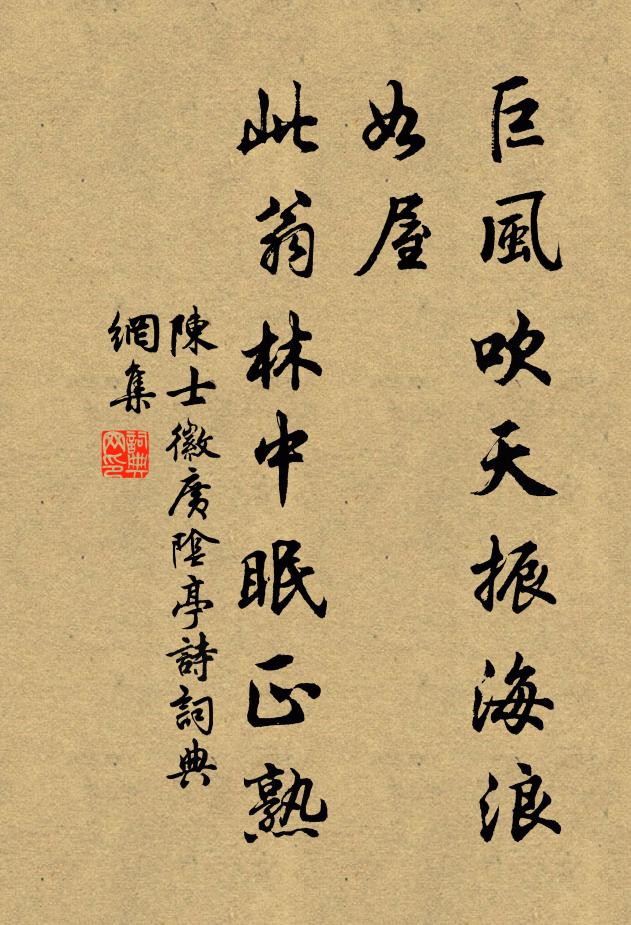 巨風吹天振海浪
如屋
此翁林中眠正熟
陳士徽廣陰亭詩詞典
網集
詞典
网印